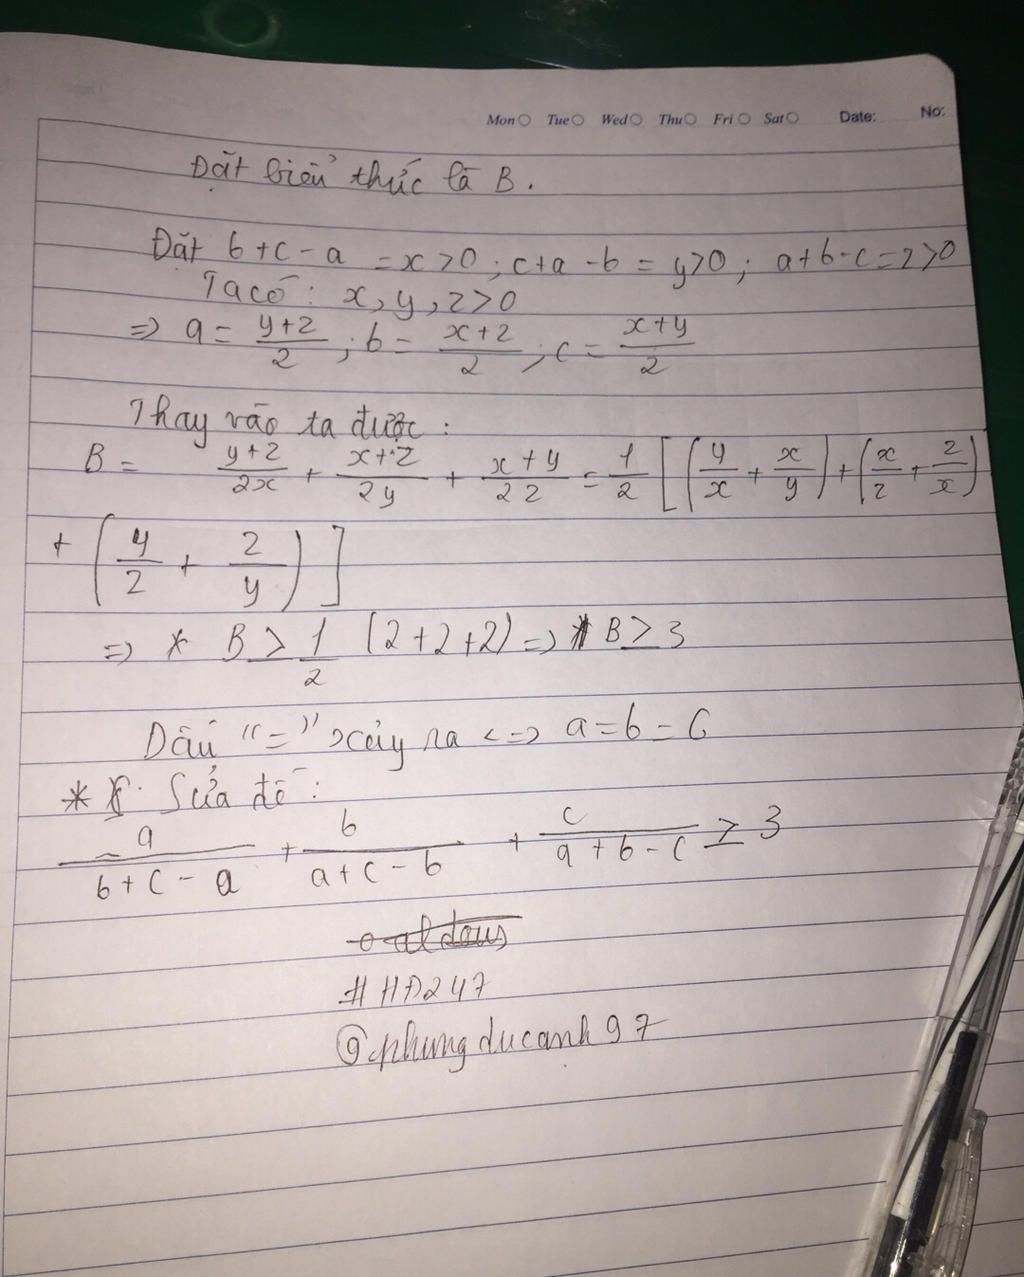 Mon Tue Wed Thu Fri Sat Date: No:
Đặt biểu thức là B.
Đặt b+c-a = x>0; c+a-b = y>0; a+b-c=z>0
Ta có: x, y, z>0
=> a = (y+z)/2; b = (x+z)/2; c = (x+y)/2
Thay vào ta được:
B = (y+z)/2x + (x+z)/2y + (x+y)/2z = 1/2 [(y/x + x/y) + (x/z + z/x)
+ (y/z + z/y)]
=> * B ≥ 1/2 (2+2+2) => B ≥ 3
Dấu "=" xảy ra <=> a=b=c
* Sửa đề:
a/(b+c-a) + b/(a+c-b) + c/(a+b-c) ≥ 3
#HĐ247
@phungducanh97